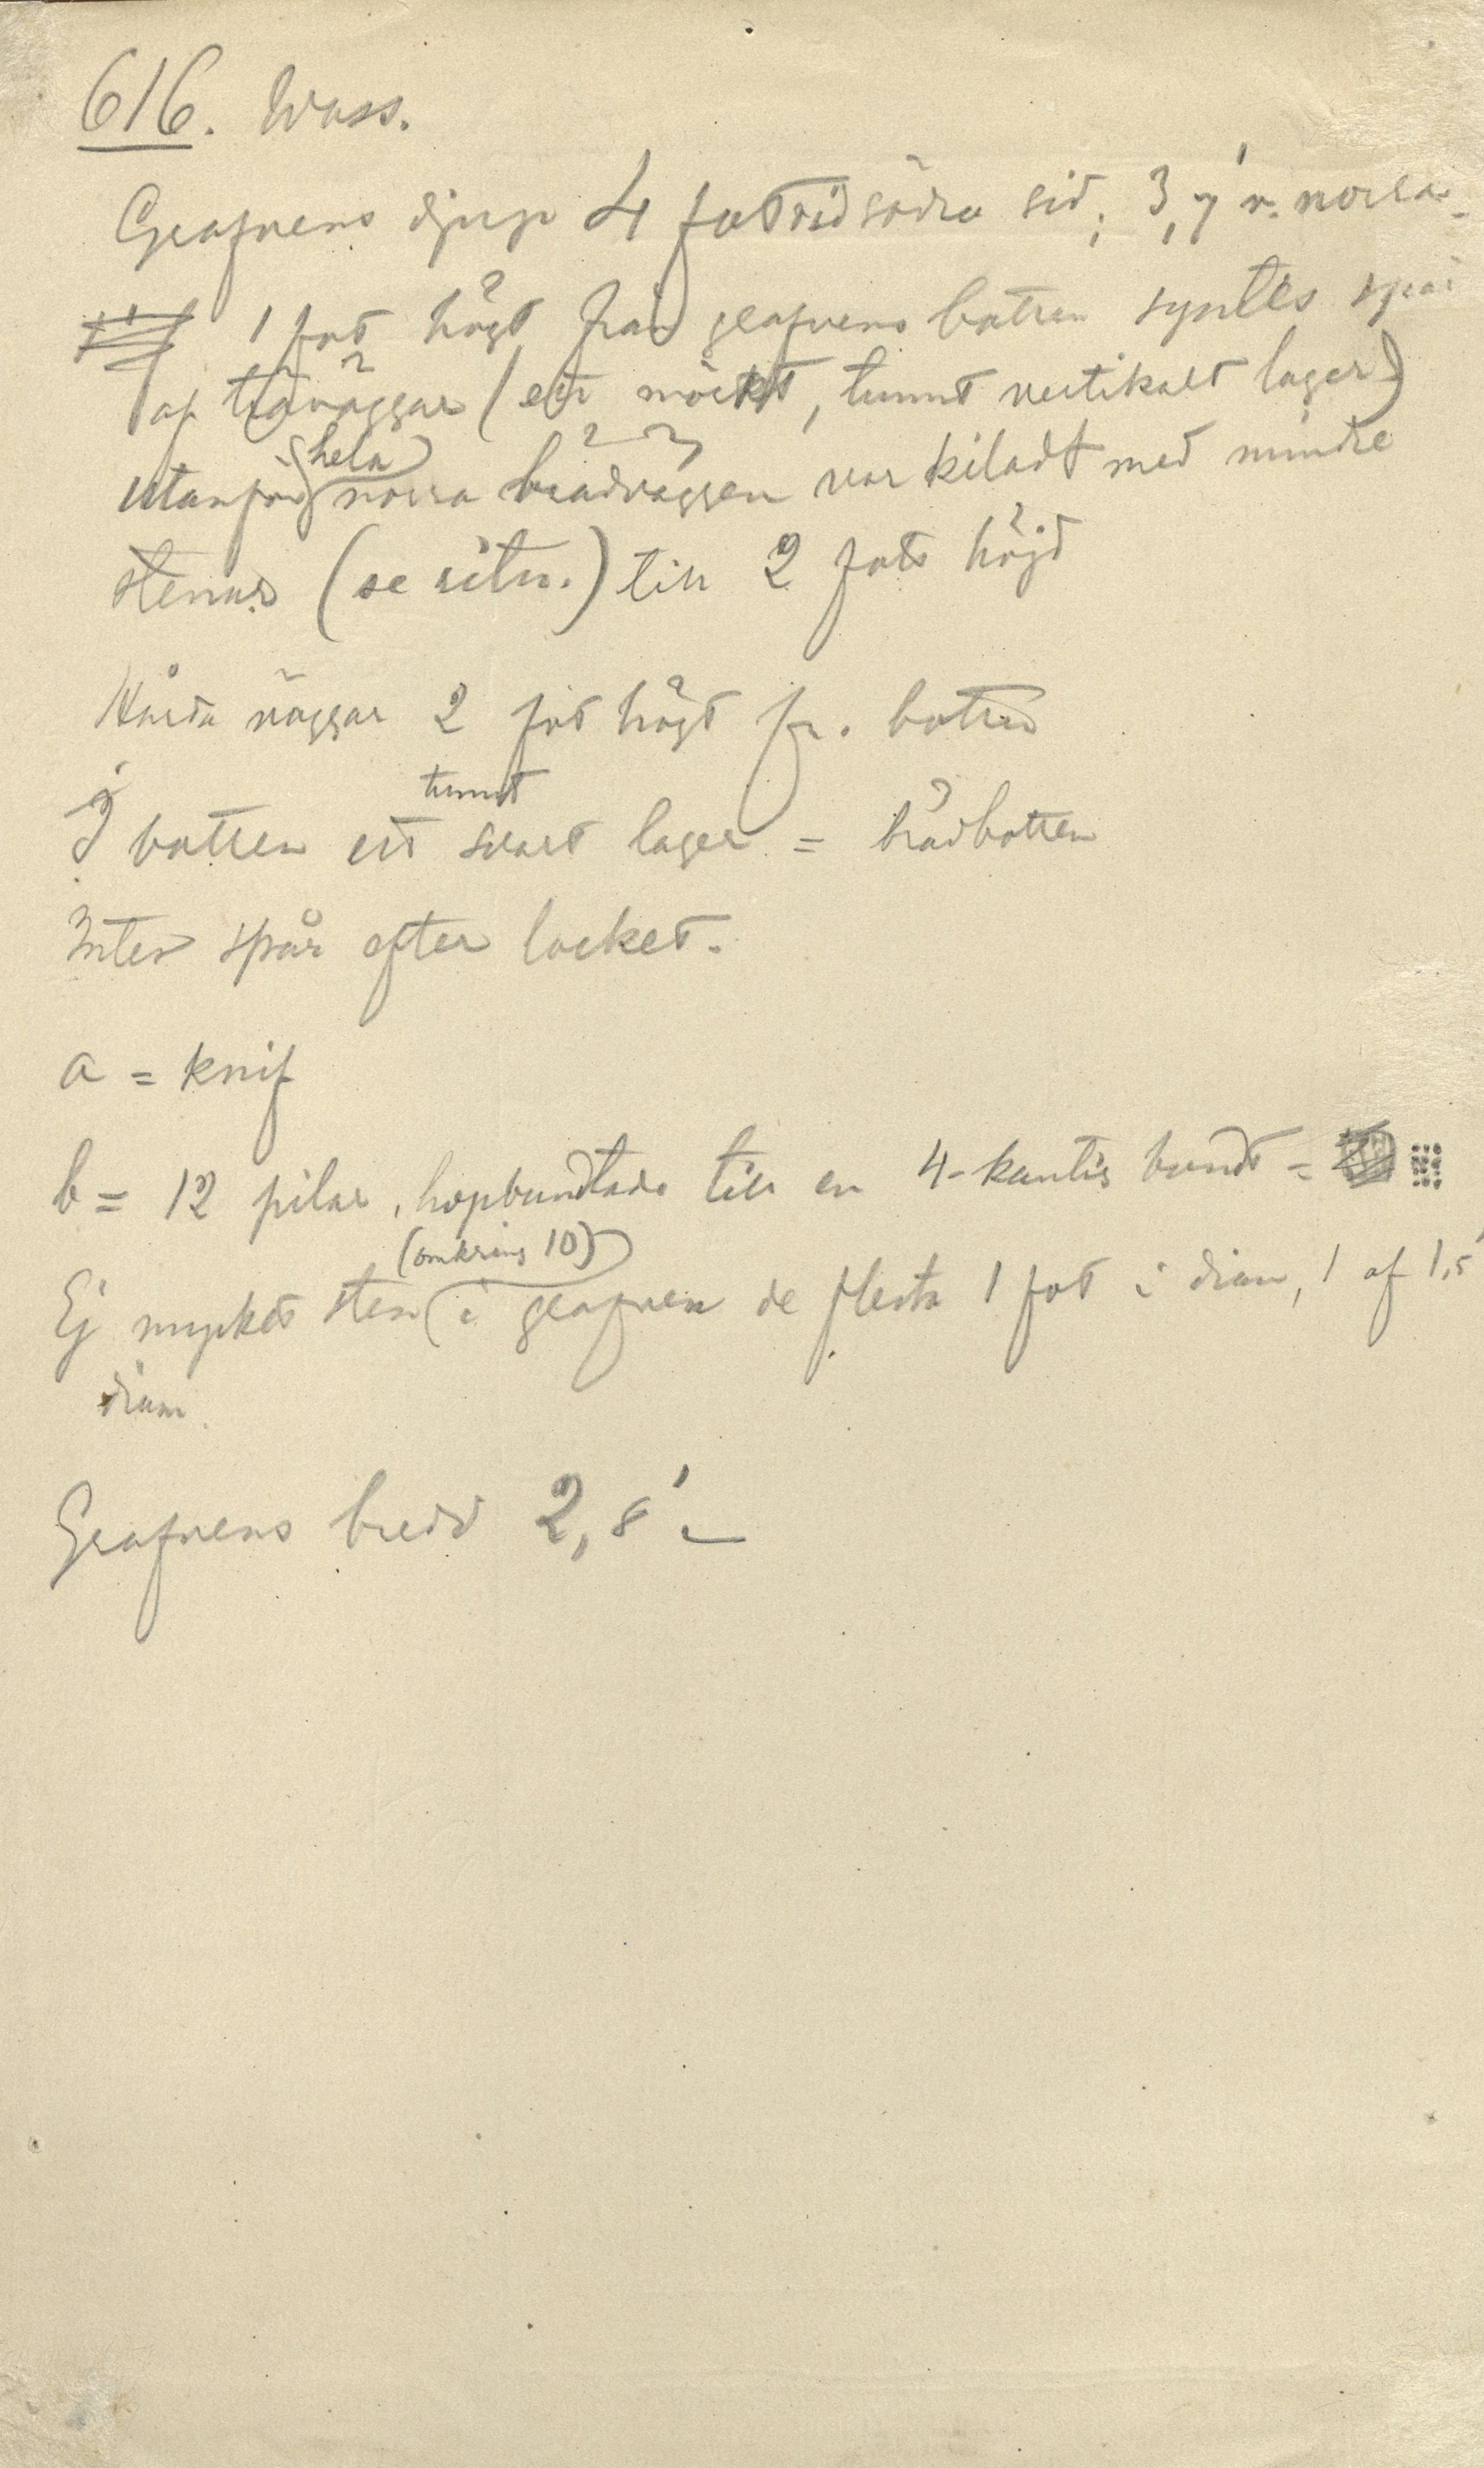 616. Wass.
Grafvens djup 4 fot vid södra sid; 3,7' v. norra.
1 fot högt från grafvens botten syntes spår
af träväggar (ett mörkt, tunnt vertikalt lager)
utanför hela norra brädväggen var kiladt med mindre
stenar (se ritn.) till 2 fots höjd
Hårda väggar 2 fot högt fr. botten
I botten ett tunnt svart lager = brädbotten
Intet spår efter locket.
a = knif
b = 12 pilar, hopbuntade till en 4-kantig bundt =
Ej mycket sten (omkring 10) i grafven de flesta 1 fot i diam, 1 af 1,5'
diam.
Grafvens bredd 2,8'